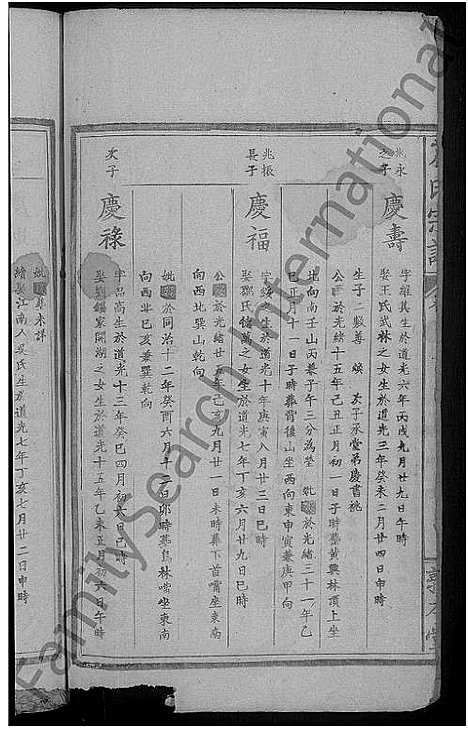 氏宗譜
兆永
之子
慶壽
字維其生於道光六年丙戌九月廿九日午時
娶王氏武林之女生於道光三年癸未二月廿四日申時
生子二毅尊 煥 次子承堂弟慶書祧
公 於光緒十五年己丑正月初一日子時葬黃興林頂上坐
北向南子山丙兼子午三分為塋 妣 於光緒三十一年乙
巳 月十一日子時葬 背後山坐西向東申寅兼庚甲向
兆振
長子
慶福
字 生於道光十年庚寅八月廿三日巳時
娶鄧氏 萬之女生於道光七年丁亥六月廿九日巳時
公 於光緒廿五年己亥九月廿一日未時葬下首 坐東南
向西北巽山乾向
妣 於同治十二年癸酉六月 卯時葬 林 坐東南
向西北巳亥兼巽乾向
次子
慶祿
字品高生於道光十三年癸巳四月初六日巳時
娶劉 家開湖之女生於道光十五年乙未正月初六日午時
妣 墓未詳
續娶江南人吳氏生於道光七年丁亥七月廿二日申時
敦本堂
FamilySearch International